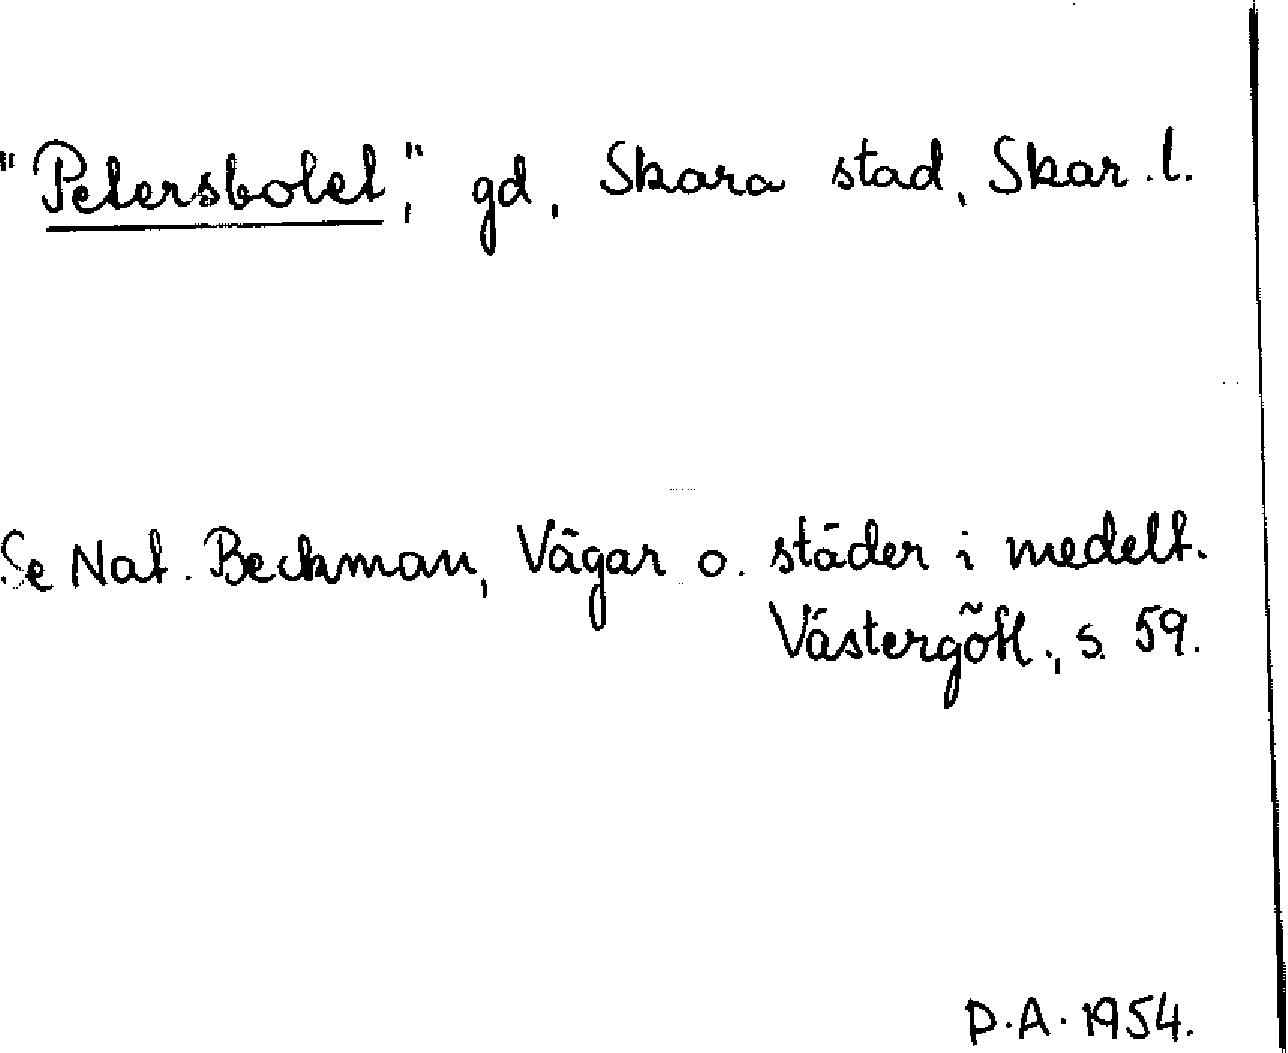 "Petersbolet", gd, Skara stad, Skar. l.
Se Nat. Beckman, Vägar o. städer i medelt.
Västergötl., s. 59.
P.A. 1954.